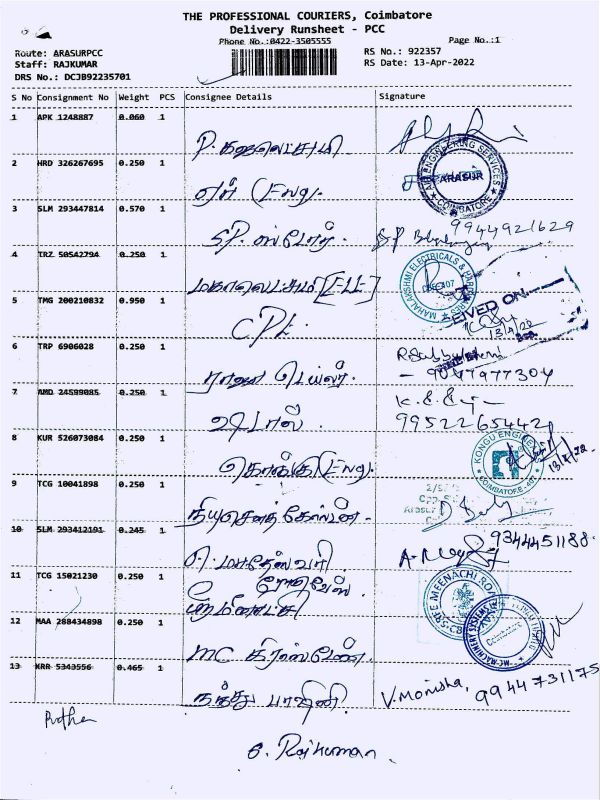 THE PROFESSIONAL COURIERS, Coimbatore
Delivery Runsheet - PCC
Phone No.:0422-3505555
Page No.:1
Route: ARASURPCC
Staff: RAJKUMAR
DRS No.: DCJB92235701
RS No.: 922357
RS Date: 13-Apr-2022
S No Consignment No Weight PCS Consignee Details Signature
1 APK 1248887 0.060 1
P. கஜலெட்சுமி
2 HRD 326267695 0.250 1
ஏன் (Eng).
ENGINEERING SERVICES
ARASUR
COIMBATORE
3 SLM 293447814 0.570 1
S.P. ஸ்டோர்.
9944921629
4 TRZ 50542794 0.250 1
மகாலெட்சுமி [ELE]
MAHALAKSHMI ELECTRICALS & HARDWARES
5 TMG 200210832 0.950 1
CPL.
13/4/22
6 TRP 6906028 0.250 1
ராஜா டெய்லர்.
- 9047977304
7 AMD 24599085 0.250 1
9952265442
8 KUR 526073084 0.250 1
கொங்கு (Eng).
KONGU ENGINEE
COIMBATORE
13/4/22
9 TCG 10041898 0.250 1
10 SLM 293412191 0.245 1
A. மகேஸ்வரி
9344451188
11 TCG 15021230 0.250 1
ஸ்ரீ மீனாட்சி ரோடுவேஸ்
SREE MEENACHI RO
12 MAA 288434898 0.250 1
MC
MC MACHINERY SYSTEMS
Coimbatore
13 KRR 5343556 0.465 1
V. Monisha,
9944731175
S. Rajkumar